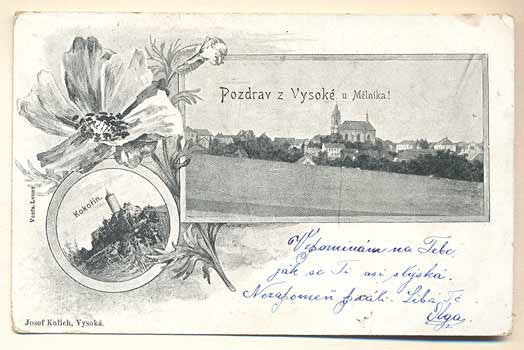 Pozdrav z Vysoké u Mělníka!
Kokořín.
Vzpomínám na Tebe,
jak se Ti asi stýská.
Nezapomeň psáti. Líbá Tě
Olga.
Josef Kulich, Vysoká.